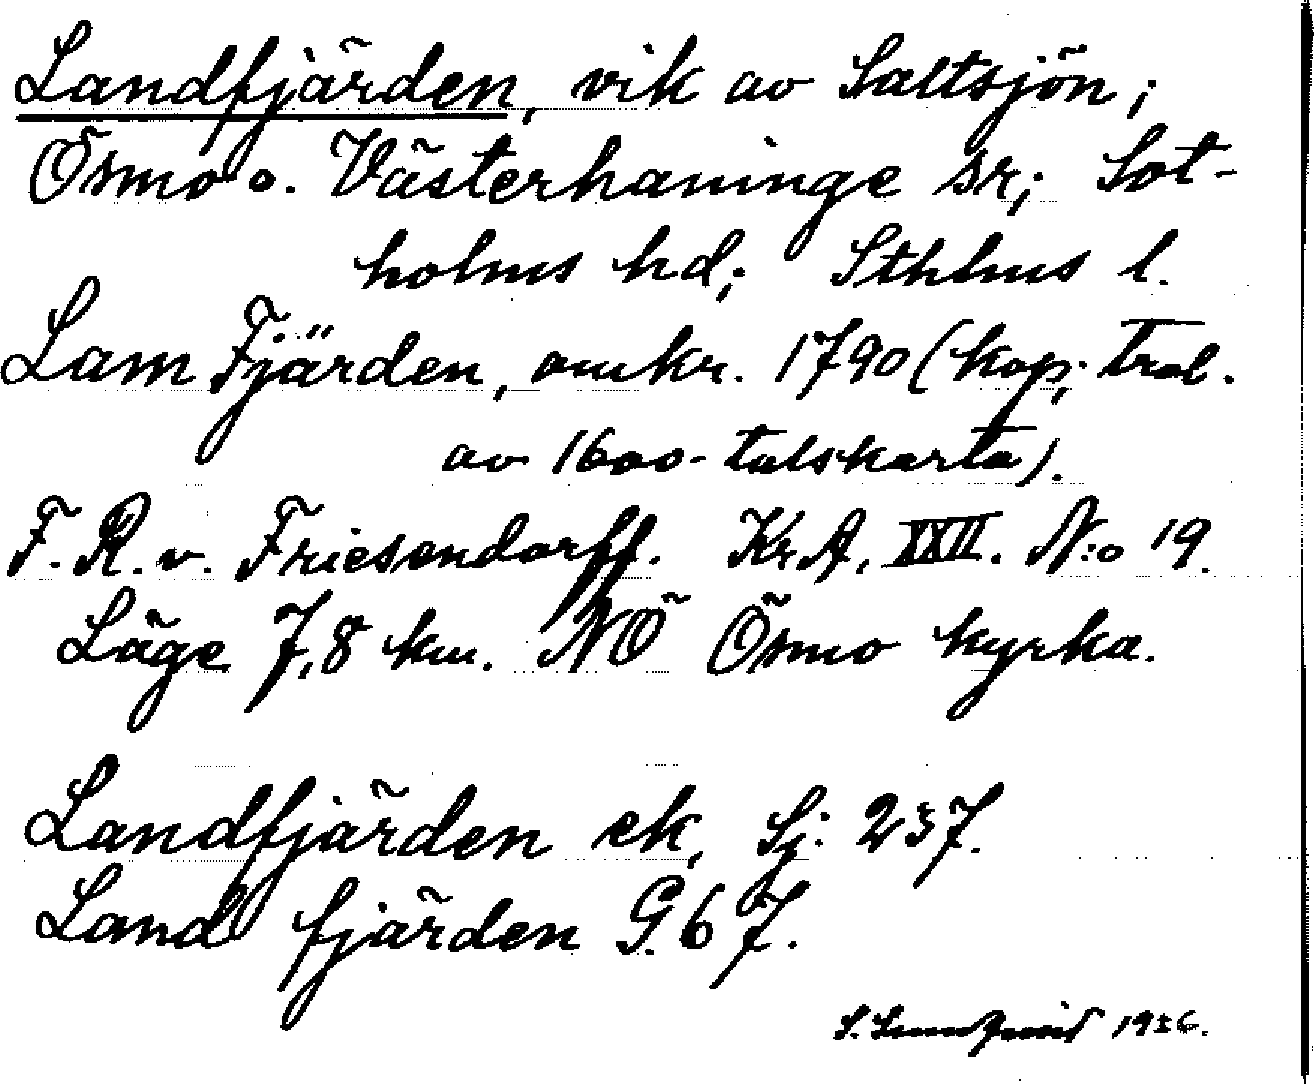 Landfjärden, vik av Saltsjön;
Ösmo o. Västerhaninge sr; Sot-
holms hd; Sthlms l.
Lam Fjärden, omkr. 1790 (kop. trol.
av 1600-talskarta).
F. R. v. Friesendorff. Kr.A. XXII. N:o 19.
Läge 7,8 km. NÖ Ösmo kyrka.
Landfjärden ek, Sj: 237.
Land fjärden G. 67.
S. 1936.